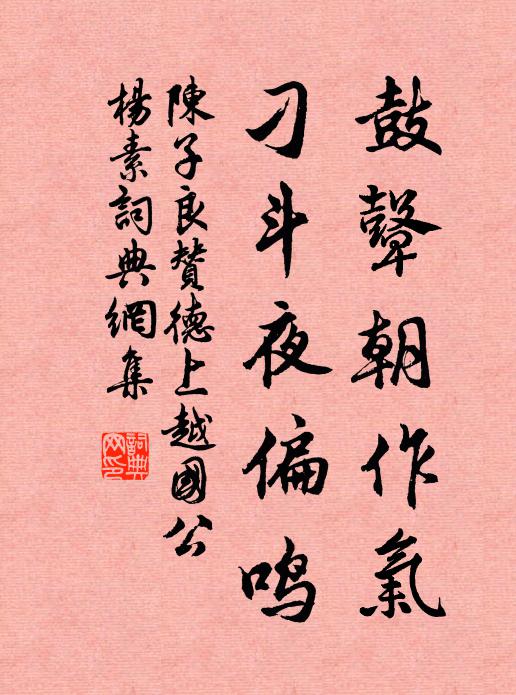 鼓鼙朝作氣
刁斗夜偏鸣
陳子良贊德上越國公
楊素詞典網集
詞典网印